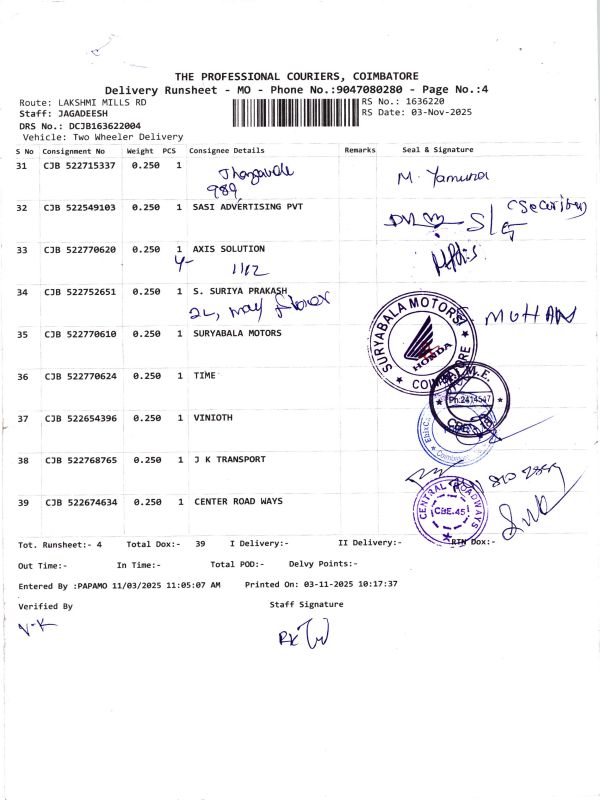 THE PROFESSIONAL COURIERS, COIMBATORE
Delivery Runsheet - MO - Phone No.:9047080280 - Page No.:4
Route: LAKSHMI MILLS RD RS No.: 1636220
Staff: JAGADEESH RS Date: 03-Nov-2025
DRS No.: DCJB163622004
Vehicle: Two Wheeler Delivery
S No Consignment No Weight PCS Consignee Details Remarks Seal & Signature
31 CJB 522715337 0.250 1
989 M. Yamuna
32 CJB 522549103 0.250 1 SASI ADVERTISING PVT
(Security)
33 CJB 522770620 0.250 1 AXIS SOLUTION
1112
34 CJB 522752651 0.250 1 S. SURIYA PRAKASH
SURYABALA MOTORS HONDA COIMBATORE MOHAN
35 CJB 522770610 0.250 1 SURYABALA MOTORS
36 CJB 522770624 0.250 1 TIME
37 CJB 522654396 0.250 1 VINIOTH
38 CJB 522768765 0.250 1 J K TRANSPORT
39 CJB 522674634 0.250 1 CENTER ROAD WAYS
CENTRAL ROADWAYS CBE-45
Tot. Runsheet:- 4 Total Dox:- 39 I Delivery:- II Delivery:- RTN Dox:-
Out Time:- In Time:- Total POD:- Delvy Points:-
Entered By :PAPAMO 11/03/2025 11:05:07 AM Printed On: 03-11-2025 10:17:37
Verified By Staff Signature
V-K